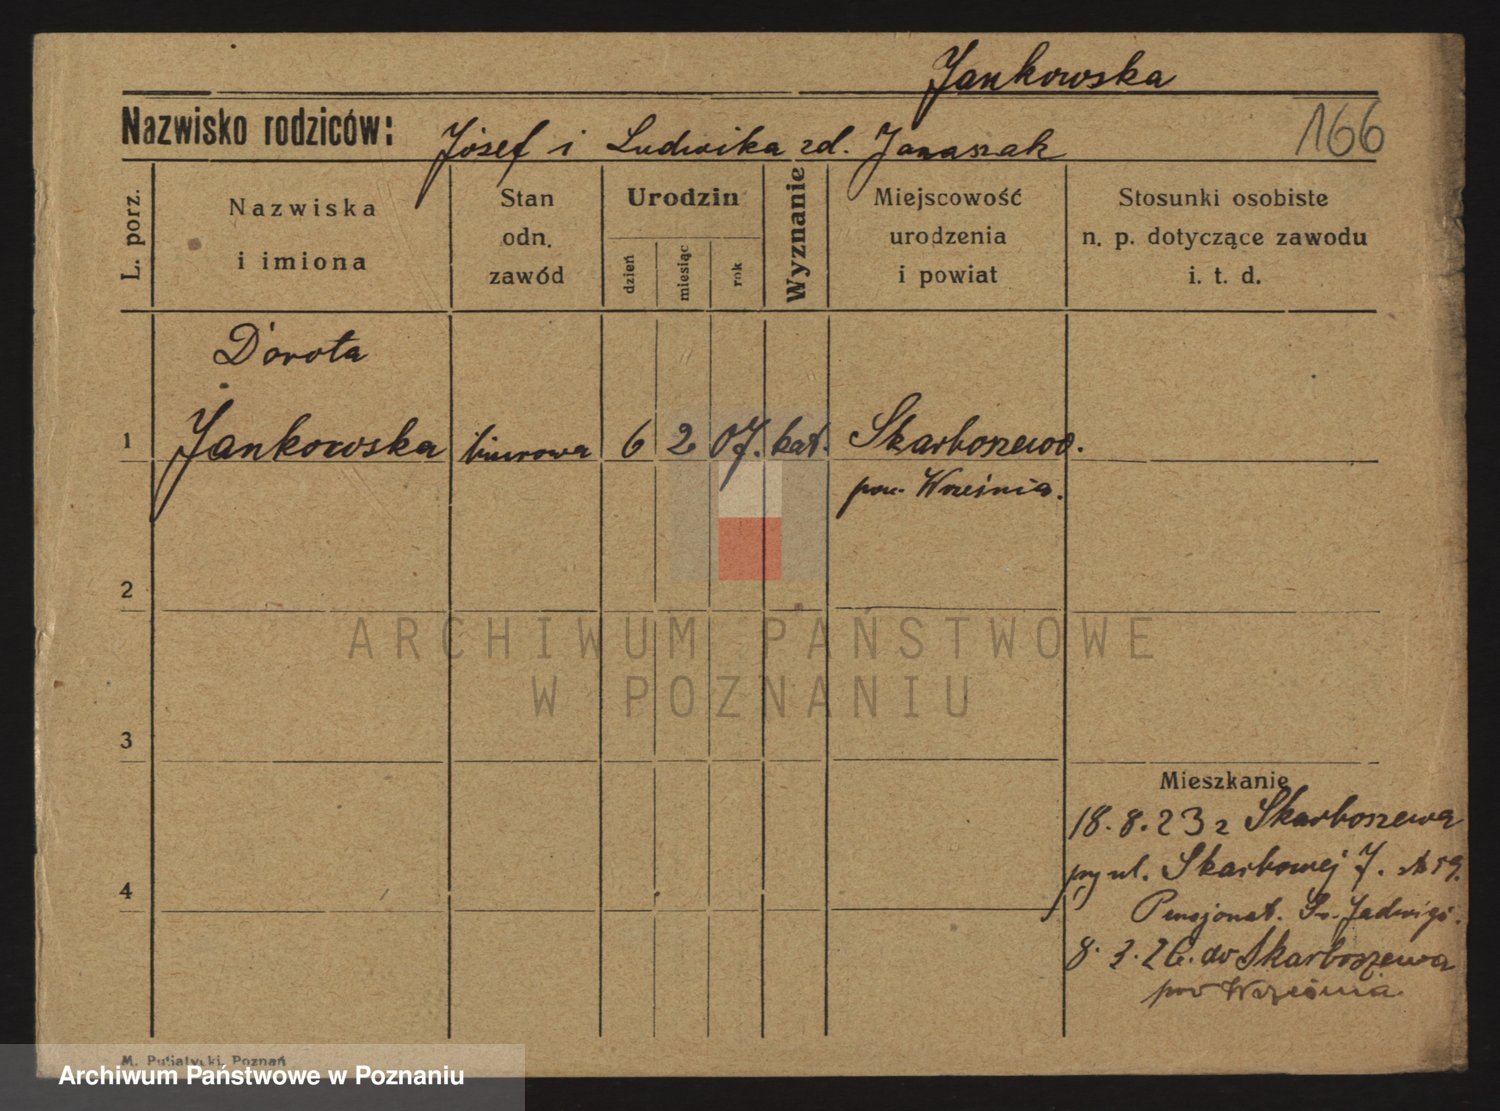 Jankowska
Nazwisko rodziców: Józef i Ludwika zd. Janaszak
166
L. porz.
Nazwiska
i imiona
Stan
odn.
zawód
Urodzin
dzień
miesiąc
rok
Wyznanie
Miejscowość
urodzenia
i powiat
Stosunki osobiste
n. p. dotyczące zawodu
i. t. d.
Dorota
1 Jankowska biurowa 6 2 07. kat. Skarboszewo.
pow. Września.
2
ARCHIWUM PAŃSTWOWE
W POZNANIU
3
Mieszkanie
18. 8. 23 z Skarboszewa
przy ul. Skarbowej 7.
4
Pensjonat. Św. Jadwigi.
8. 3. 26. do Skarboszewa
pow Września
M. Putiatycki, Poznań
Archiwum Państwowe w Poznaniu